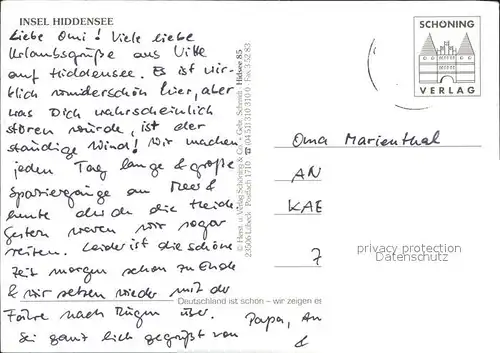 INSEL HIDDENSEE
Liebe Omi! Viele liebe
Urlaubsgrüße aus Vitte
auf Hiddensee. Es ist wir-
klich wunderschön hier, aber
was Dich wahrscheinlich
stören würde, ist der
ständige Wind! Wir machen
jeden Tag lange & große
Spaziergänge am Meer &
heute durch die Heide.
Gestern waren wir sogar
reiten. Leider ist die schöne
Zeit morgen schon zu Ende
& wir setzen wieder mit der
Fähre nach Rügen über.
Sei ganz lieb gegrüßt von Papa, An
&
Deutschland ist schön – wir zeigen es
© Herst. u. Verlag Schöning & Co. + Gebr. Schmidt
23506 Lübeck · Postfach 1710 ☎ 04 51/310 310 · Fax 5 52 83
Hidsee 85
SCHÖNING
VERLAG
Oma Marienthal
AN
KAE
7
privacy protection
Datenschutz